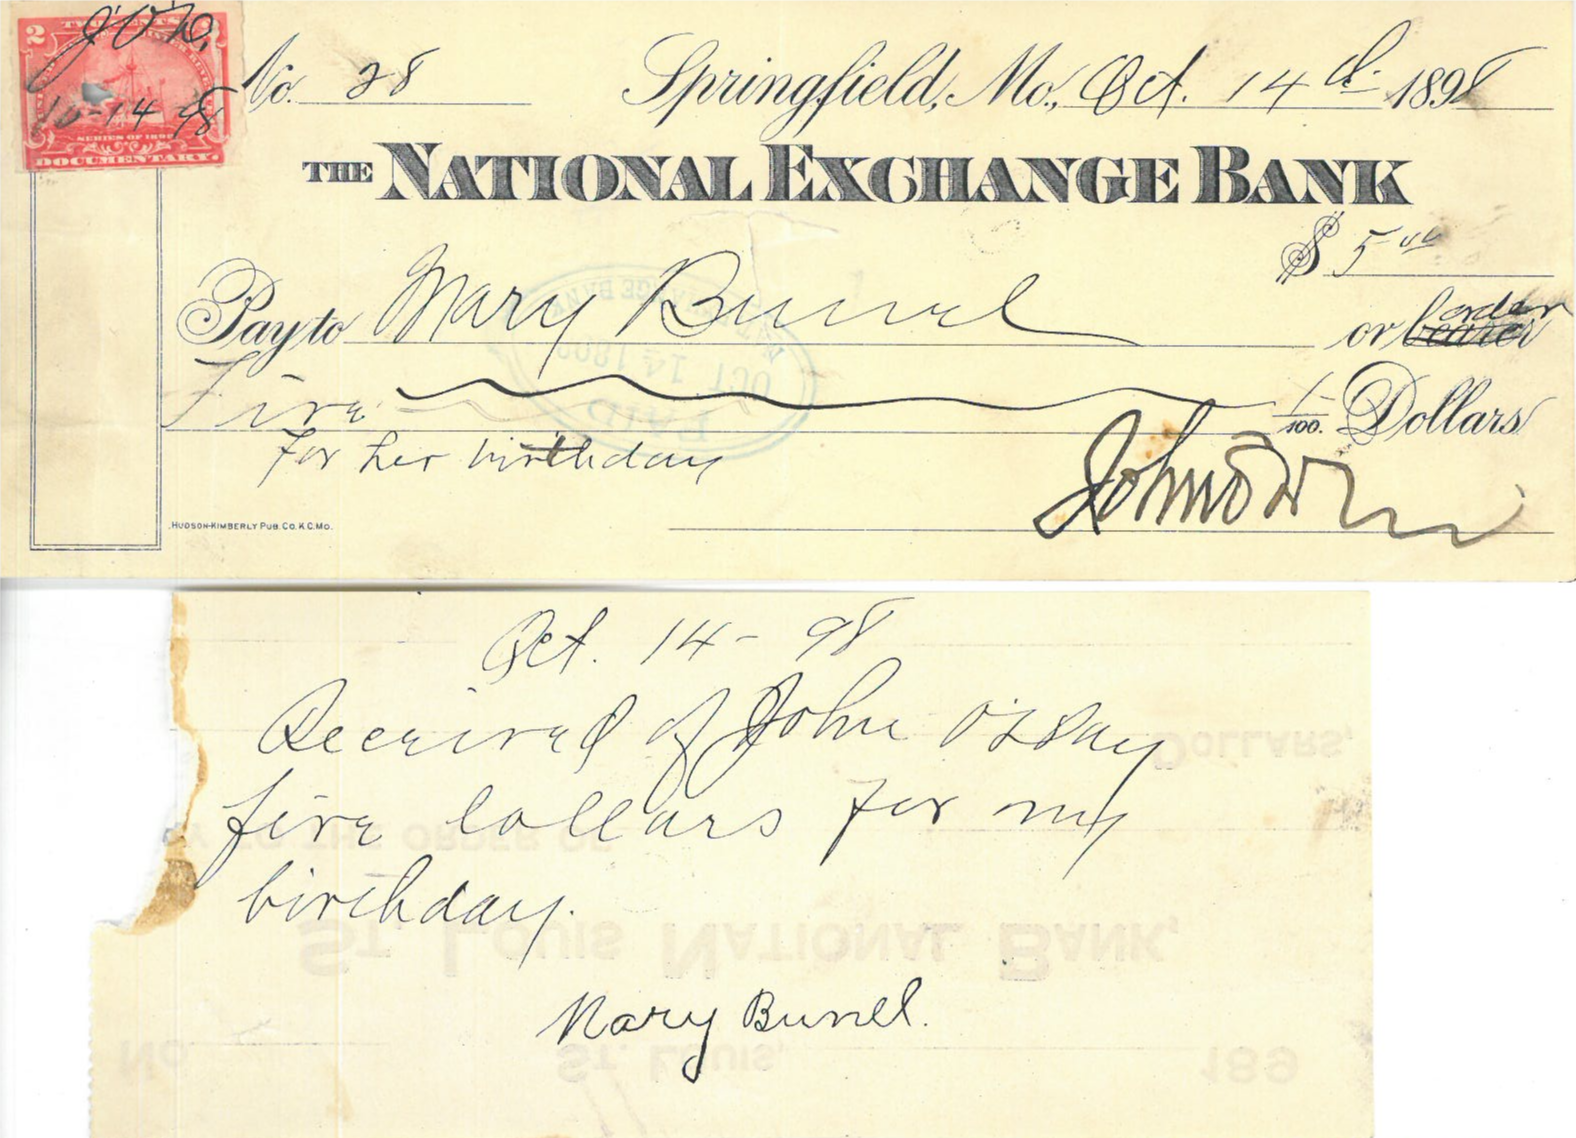 2 TWO CENTS 2
J.O'D.
10-14-98
SERIES OF 1898
DOCUMENTARY.
No. 28 Springfield, Mo., Oct. 14th 1898
THE NATIONAL EXCHANGE BANK
$ 5 00
Pay to Mary Bunel or bearer order
Five — /100. Dollars
for her birthday
PAID
OCT 14 1898
HUDSON-KIMBERLY PUB. CO. K.C. MO.
Oct. 14 - 98
Received of John O'Day
five dollars for my
birthday.
Mary Bunel.
DOLLARS,
TO THE ORDER OF
ST. LOUIS NATIONAL BANK,
No ST. LOUIS, 189